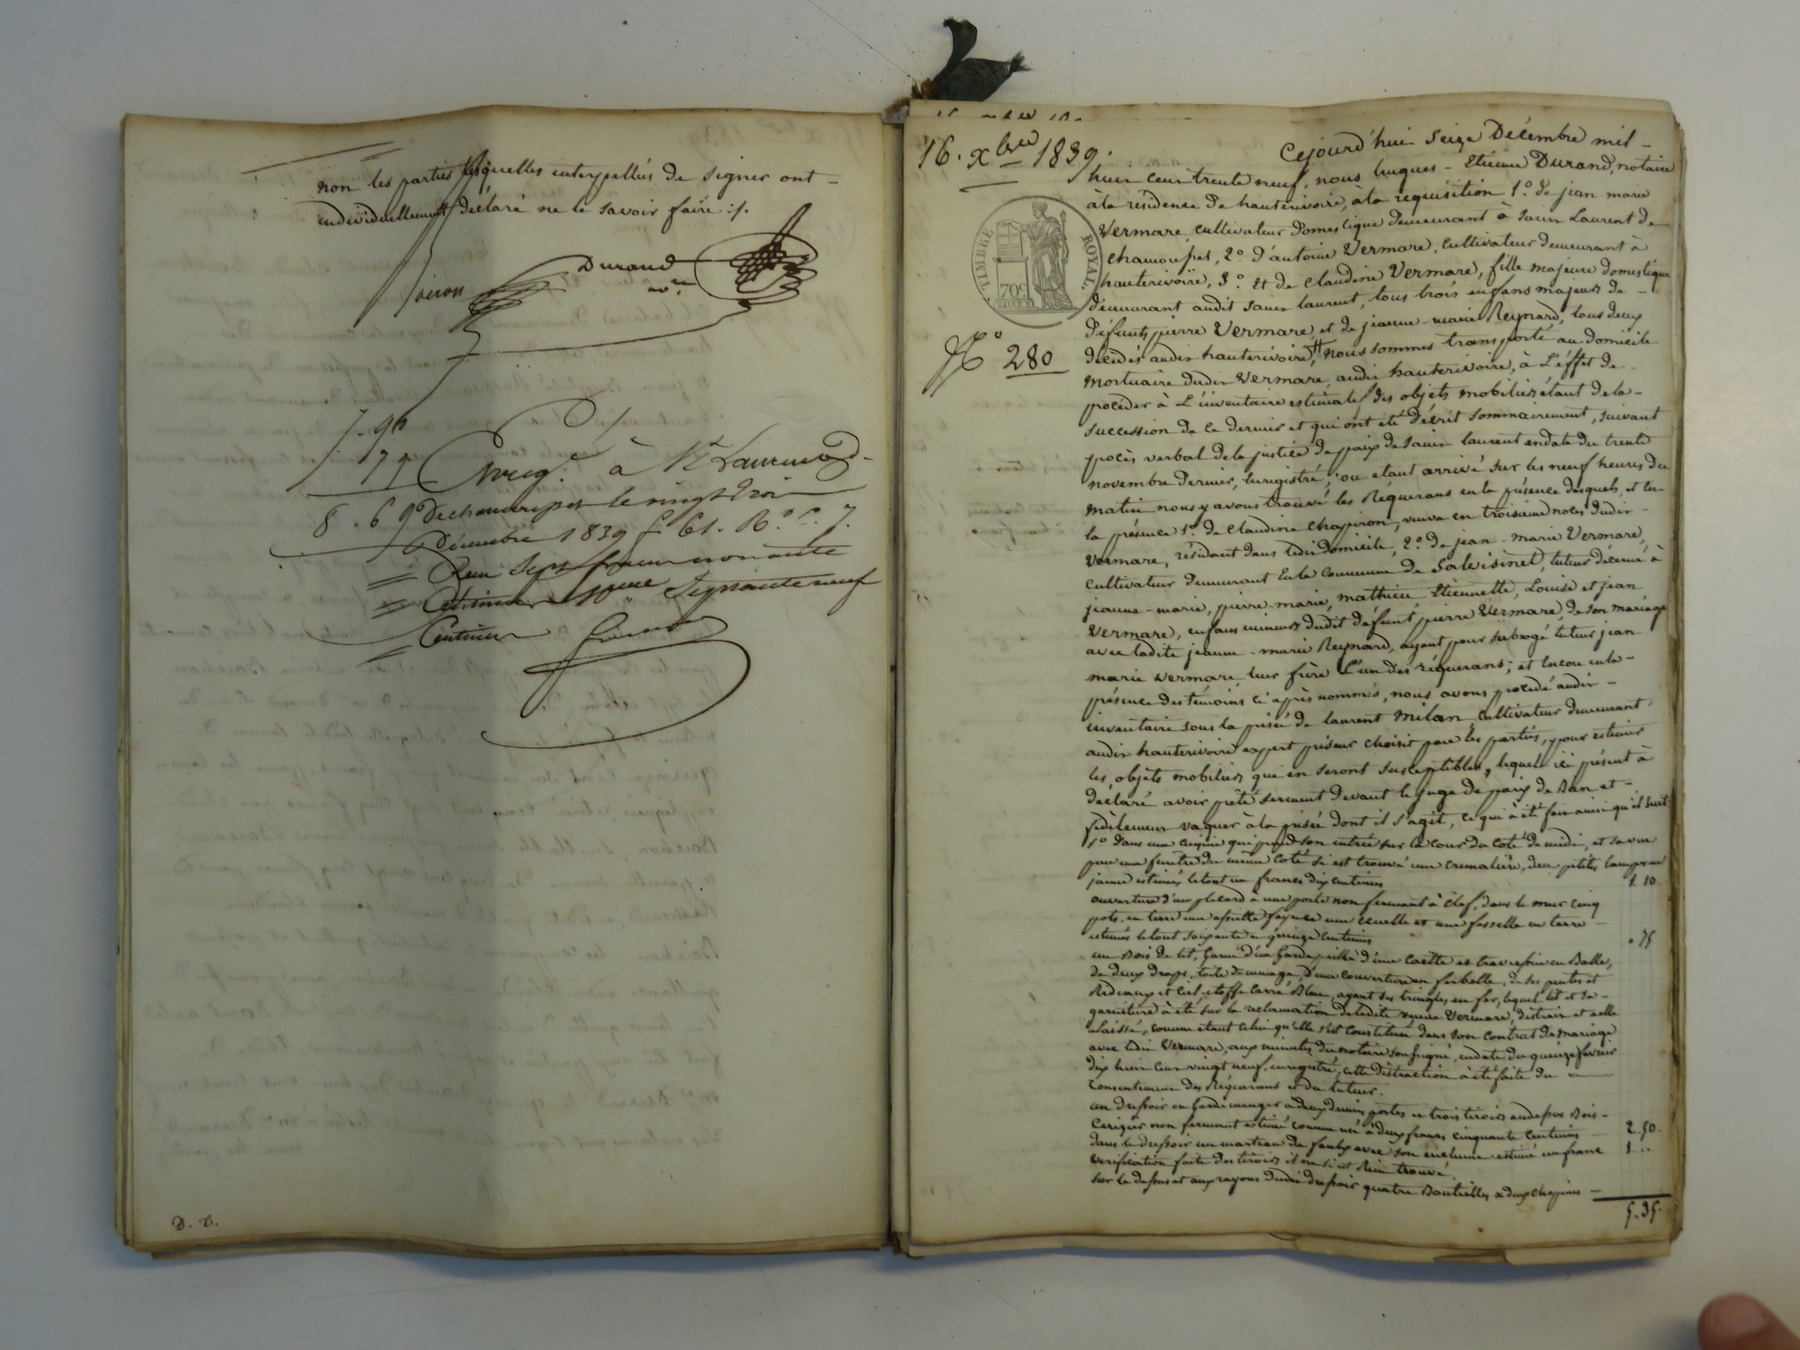 non les parties lesquelles interpellées de signer ont
individuellement déclaré ne le savoir faire ./.
Durand
nre
7.90
79
8.69
Enreg. à St Laurent
de chamousset le vingt trois
Décembre 1839 f. 61. Ro. C. 7.
Reçu sept francs nonante
Centimes 10eme Septante neuf
Centimes
D. D.
16. xbre 1839.
TIMBRE ROYAL
70c
No 280
Cejourd'hui seize Décembre mil
huit cent trente neuf, nous luques - Etienne Durand, notaire
à la résidence de hauterivoire, à la requisition 1.o de jean marie
Vermare, cultivateur domestique demeurant à Saint Laurent de
chamousset, 2.o d'antoine Vermare, cultivateur demeurant à
hauterivoire, 3.o Et de Claudine Vermare, fille majeure domestique
demeurant audit Saint laurent, tous trois enfans majeurs de
défunts pierre Vermare et de jeanne-marie Reynard, tous deux
décédés audit hauterivoire, # nous sommes transporté au domicile
mortuaire dudit Vermare, audit hauterivoire, à l'éffet de
procéder à L'inventaire estimatif des objets mobiliers étant de la
succession de ce dernier et qui ont été décrit sommairement, suivant
procès verbal de la justice de paix de Saint laurent en date du trente
novembre dernier, Enregistré; ou étant arrivé sur les neuf heures du
matin nous y avons trouvé les Réquerans en la présence desquels et en
la présence 1.o de Claudine Chapiron, veuve en troisieme noces dudit
Vermare, résidant dans ledit domicile, 2.o de jean-marie Vermare,
cultivateur demeurant En la Commune de Salvisinet, tuteur décerné à
jeanne-marie, pierre-marie, mathieu, Etiennette, Louise et jean
Vermare, enfans mineurs dudit défunt pierre Vermare, de son mariage
avec ladite jeanne-marie Reynard, ayant pour subrogé tuteur jean
marie Vermare, leur frère L'un des réquerans; et Encore en la
présence des témoins ci après nommés, nous avons procédé audit
inventaire sous la prisée de laurent Milan, Cultivateur demeurant
audit hauterivoire expert priseur choisit par les parties, pour estimer
les objets mobiliers qui en seront susceptibles, lequel ici présent à
déclaré avoir prêté serment devant le juge de paix de Bien et
fidèlement vaquer à la prisée dont il s'agit, ce qui à été fait ainsi qu'il suit:
1.o dans une cuisine qui prend son entrée sur la cour du coté de midi, et sa vue
par une fenêtre du même coté Si est trouvé une cremalière, deux petites lampes en
jaune estimés le tout un franc dix centimes 1.10.
ouverture d'un placard a une porte non fermant à clef, dans le mur cinq
pots, en terre une assiette fayence une ecuelle et une faisselle en terre
estimés le tout soixante et quinze Centimes . 75
un Bois de lit, Garni d'un Garde paille d'une Coëtte et traversin en Balle,
de deux draps, toile de ménage, d'une couverture, de ses pentes et
Rideaux et Ciel étoffe Carré Bleu, ayant ses tringles en fer, lequel lit et sa
garniture à été sur la reclamation de ladite veuve Vermare, distrait et a elle
alaissé, comme étant celui qu'elle s'est Constitué dans son Contrat de mariage
avec ledit Vermare, aux minutes du notaire soussigné, en date du quinze fevrier
dix huit cent vingt neuf, enregistré, cette distraction à été faite du
Consentement des Réquerans et du tuteur.
un dressoir ou Garde manger a deux demies portes et trois tiroirs au dessous Bois
Cerisier non fermant estimé comme usé à deux francs cinquante centimes 2.50.
dans le dressoir un marteau de faulx avec son enclume estimé un franc 1 ..
vérification faite des tiroirs il ne si est Rien trouvé
sur le dessus et aux rayons dudit dressoir quatre Bouteilles a deux chopines
5.35.